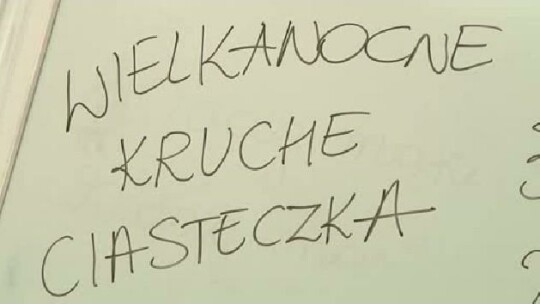 WIELKANOCNE
KRUCHE
CIASTECZKA